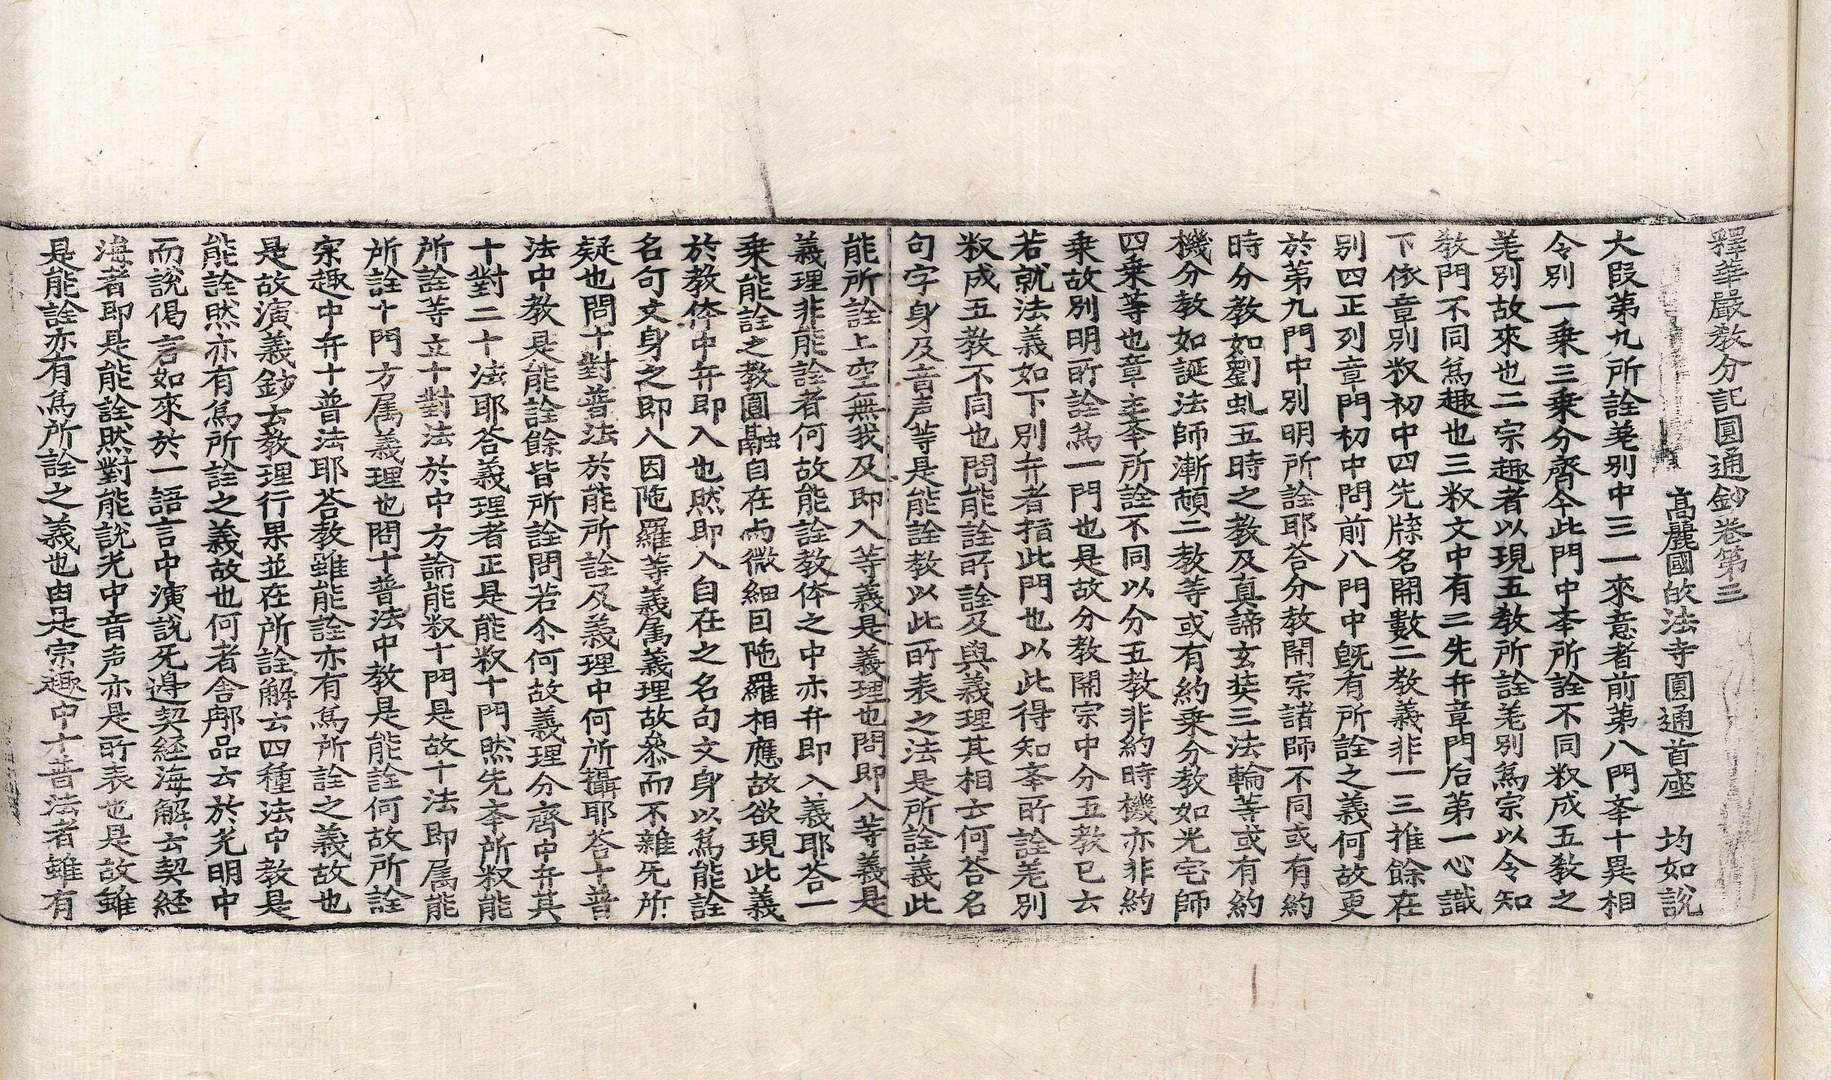 釋華嚴教分記圓通鈔卷第三
高麗國㱕法寺圓通首座　均如說
大叚第九所詮差別中三一來意者前第八門夲十異相
令別一乗三乗分齊今此門中夲所詮不同㪅成五教之
差別故來也二宗趣者以現五教所詮差別爲宗以令知
教門不同爲趣也三㪅文中有二先弁章門后第一心識
下依章別㪅初中四先牒名開數二教義非一三推餘在
別四正列章門初中問前八門中旣有所詮之義何故更
於第九門中別明所詮耶荅分教開宗諸師不同或有約
時分教如劉虬五時之教及真諦玄奘三法輪等或有約
機分教如誕法師漸頓二教等或有約乗分教如光宅師
四乗等也章主夲所詮不同以分五教非約時機亦非約
乗故別明所詮爲一門也是故分教開宗中分五教已云
若就法義如下別弁者指此門也以此得知夲所詮差別
㪅成五教不同也問能詮所詮及與義理其相云何荅名
句字身及音声等是能詮教以此所表之法是所詮義此
能所詮上空無我及即入等義是義理也問即入等義是
義理非能詮者何故能詮教体之中亦弁即入義耶荅一
乗能詮之教圓融自在而微細因陁羅相應故欲現此義
於教体中弁即入也然即入自在之名句文身以爲能詮
名句文身之即入因陁羅等義属義理故叅而不雜旡所
疑也問十對普法於能所詮及義理中何所攝耶荅十普
法中教是能詮餘皆所詮問若尒何故義理分齊中弁其
十對二十法耶荅義理者正是能㪅十門然先夲所㪅能
所詮等立十對法於中方論能㪅十門是故十法即属能
所詮十門方属義理也問十普法中教是能詮何故所詮
宗趣中弁十普法耶荅教雖能詮亦有爲所詮之義故也
是故演義鈔云教理行果並在所詮解云四種法中教是
能詮然亦有爲所詮之義故也何者舍那品云於光明中
而說偈言如來於一語言中演說旡邊契經海解云契經
海者即是能詮然對能說光中音声亦是所表也是故雖
是能詮亦有爲所詮之義也由是宗趣中十普法者雖有